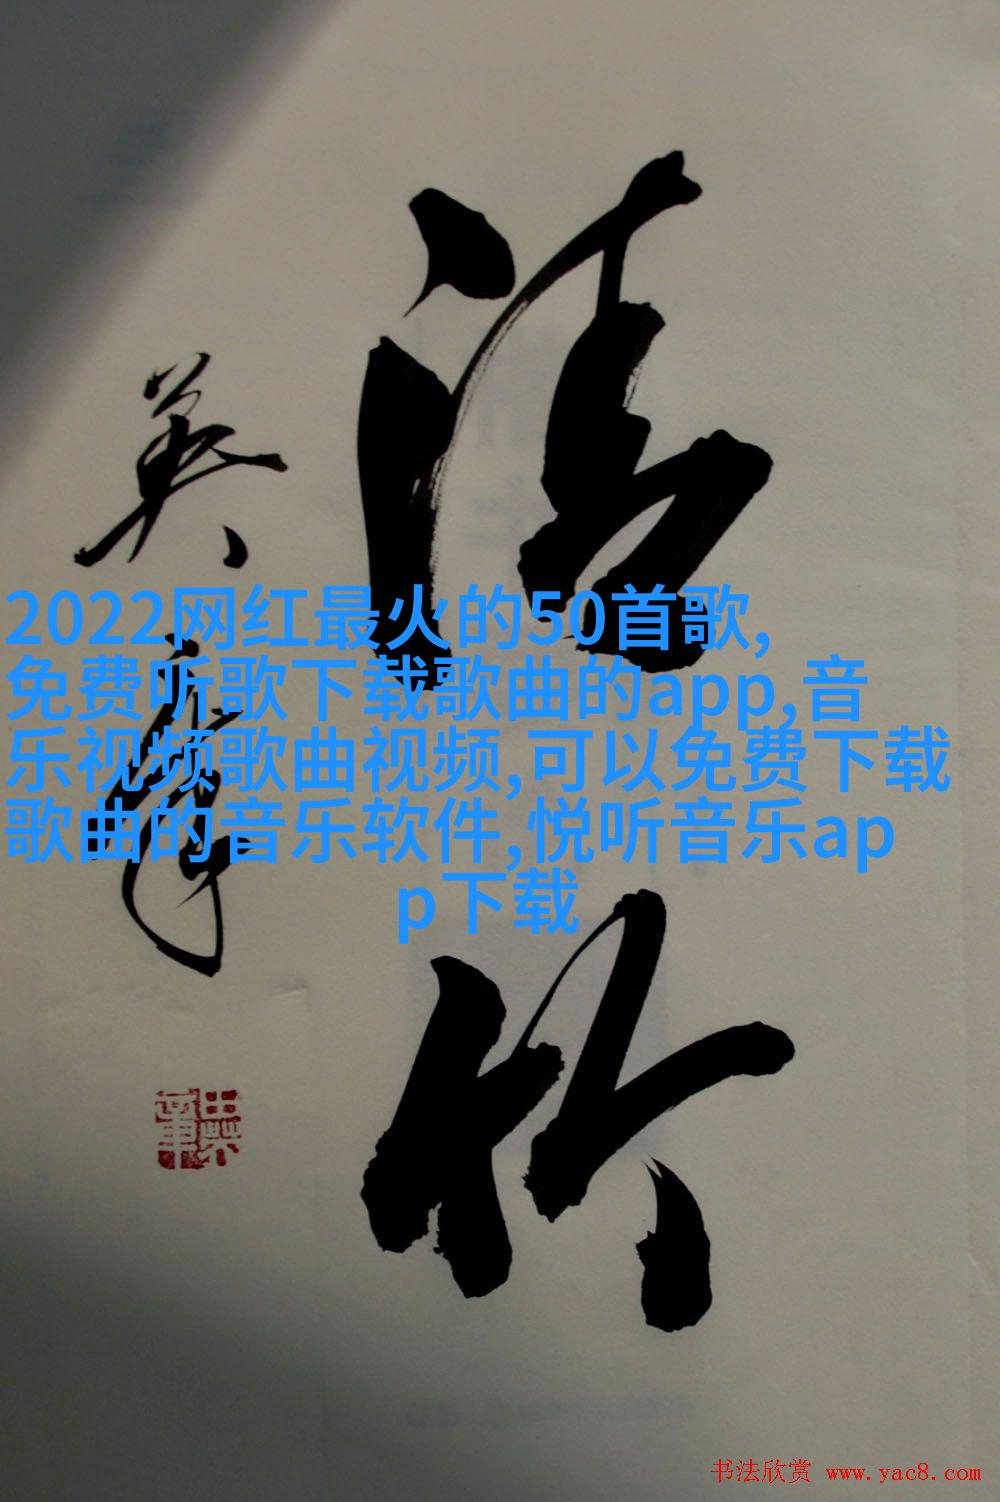 英
章
2022网红最火的50首歌,
免费听歌下载歌曲的app,音
乐视频歌曲视频,可以免费下载
歌曲的音乐软件,悦听音乐ap
p下载
田英章
书法欣赏 www.yac8.com